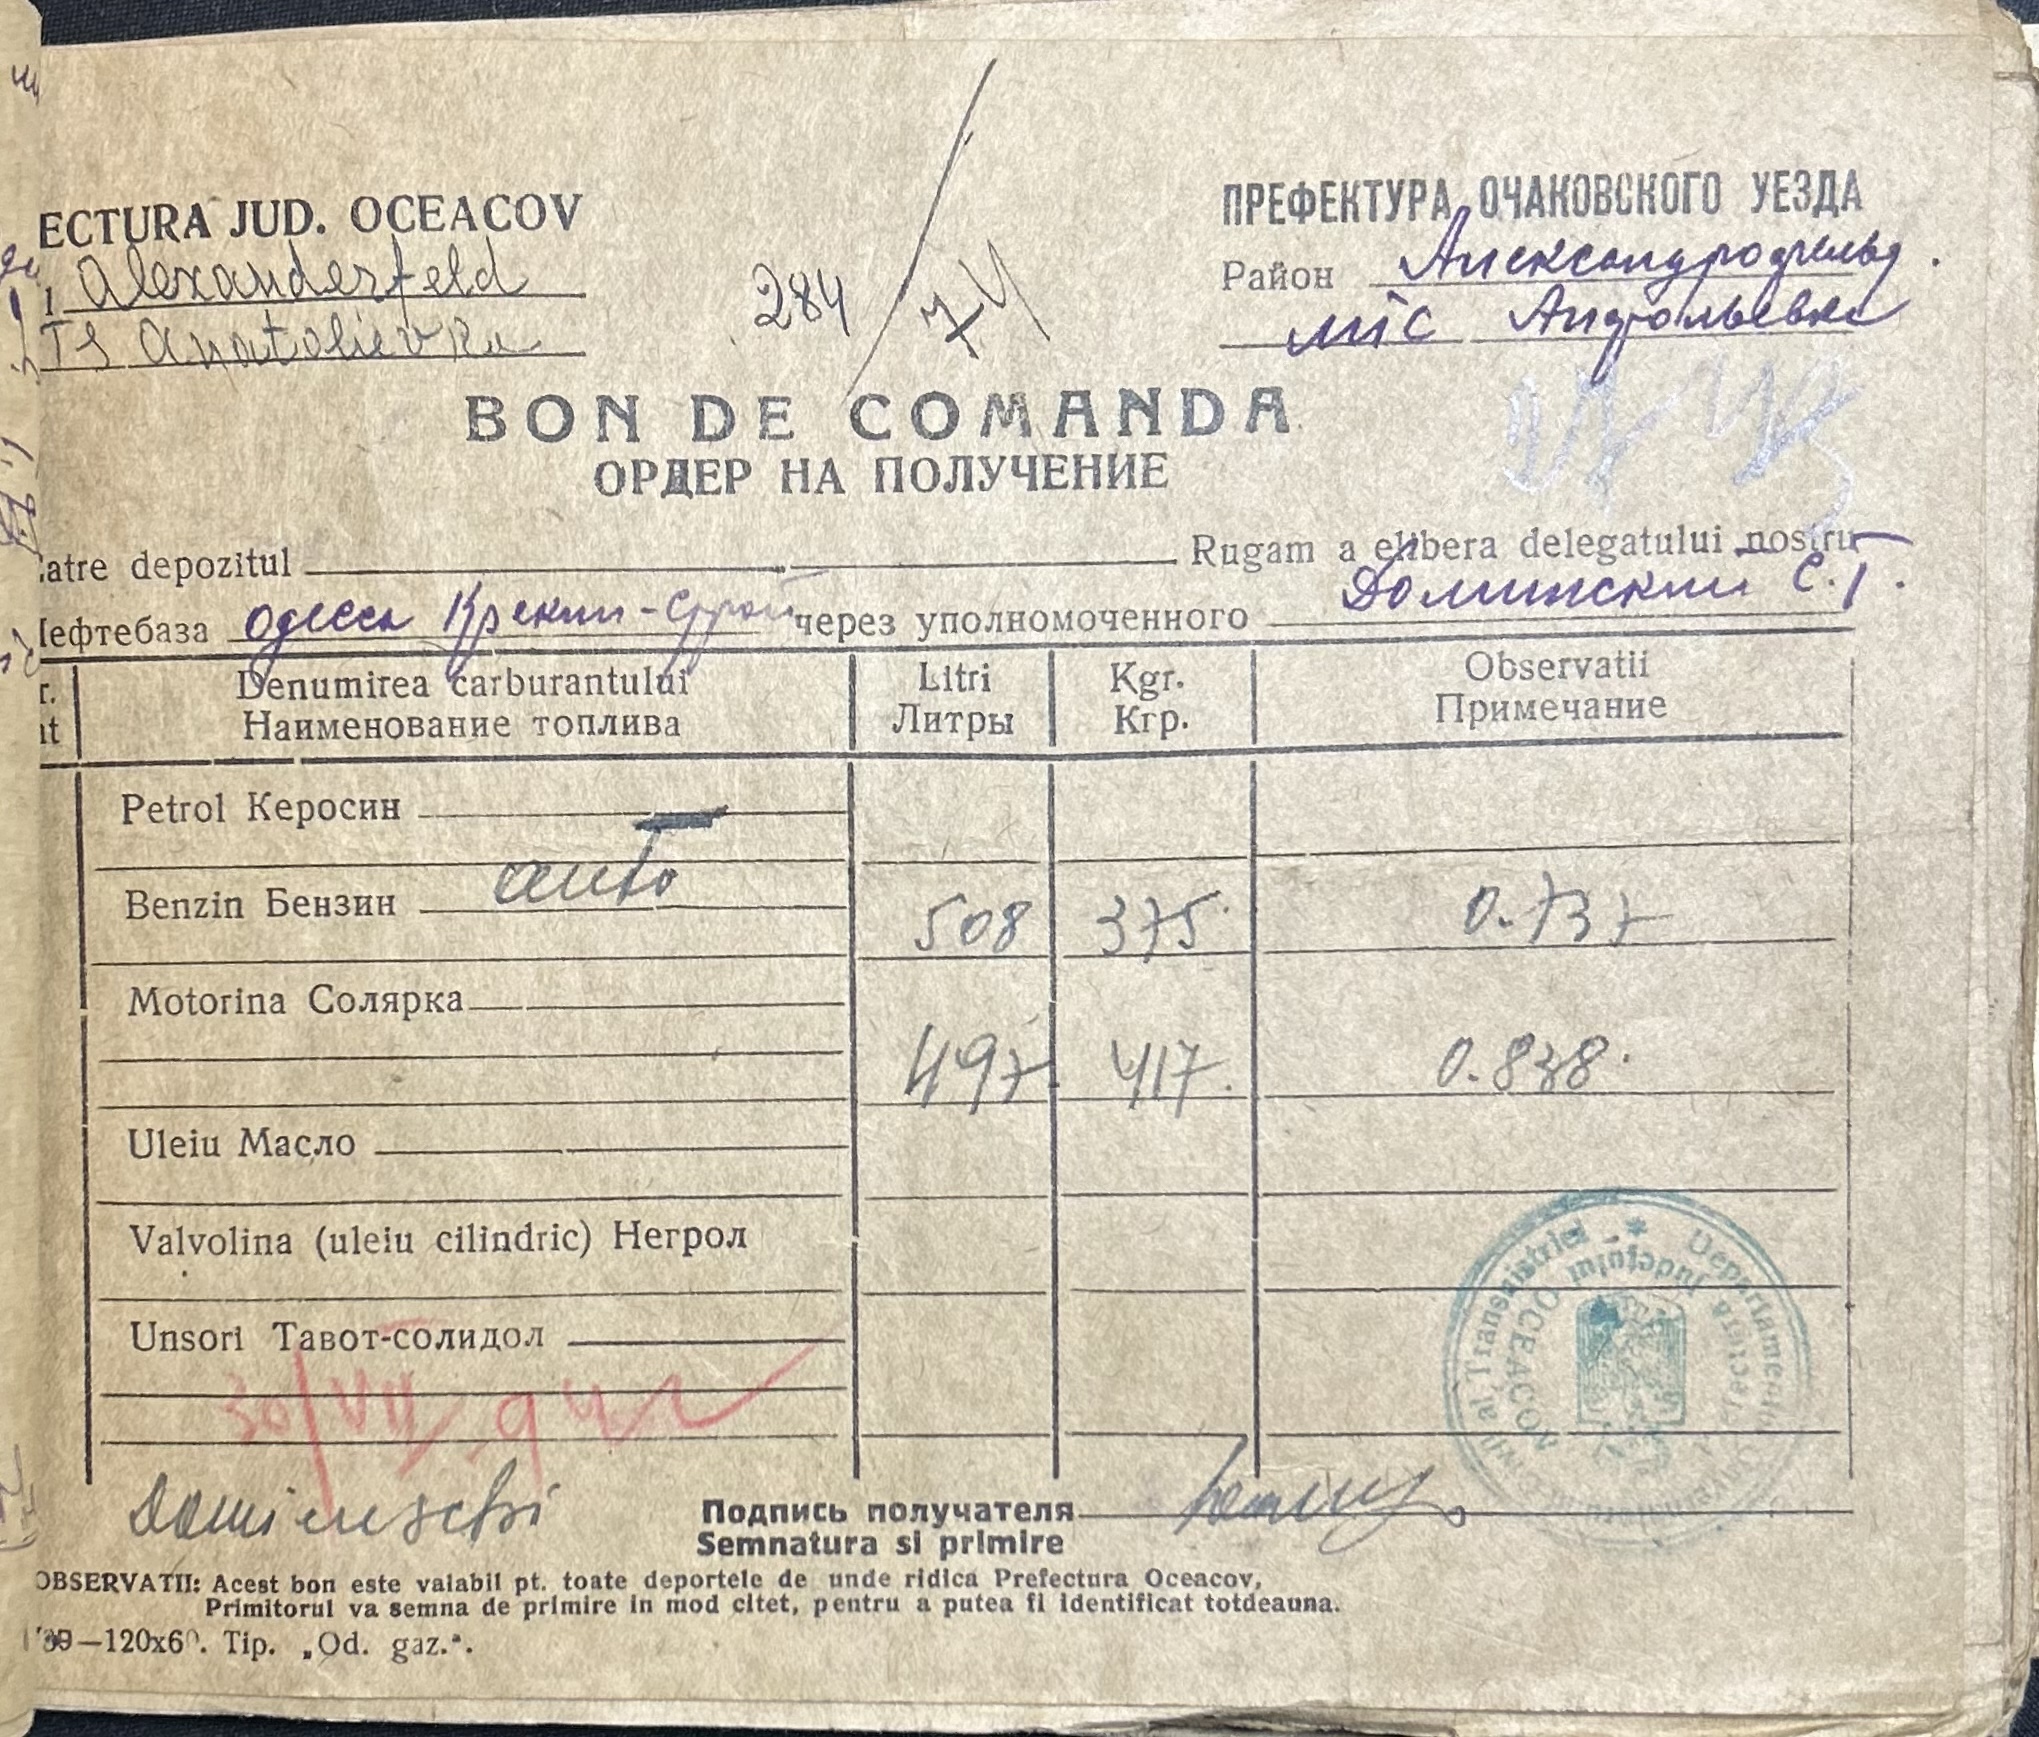 ECTURA JUD. OCEACOV
ПРЕФЕКТУРА ОЧАКОВСКОГО УЕЗДА
Alexanderfeld
Район Александрофельд.
TS Anatolievka
міс Андрольевка
284/74
BON DE COMANDA
ОРДЕР НА ПОЛУЧЕНИЕ
atre depozitul Rugam a elibera delegatului nostru
Нефтебаза Одесса Крекин-Строй через уполномоченного Доминский С.Г.
r. Denumirea carburantului Litri Kgr. Observatii
nt Наименование топлива Литры Кгр. Примечание
Petrol Керосин
Benzin Бензин auto 508 375 0.737
Motorina Солярка
497 417. 0.838
Uleiu Масло
Valvolina (uleiu cilindric) Негрол
Unsori Тавот-солидол
30/VII 942
Domienschi
Подпись получателя
Semnatura si primire
OBSERVATII: Acest bon este valabil pt. toate deportele de unde ridica Prefectura Oceacov,
Primitorul va semna de primire in mod citet, pentru a putea fi identificat totdeauna.
39—120x60. Tip. „Od. gaz.".
al Transnistriei * Departamentul
Județului
OCEACOV